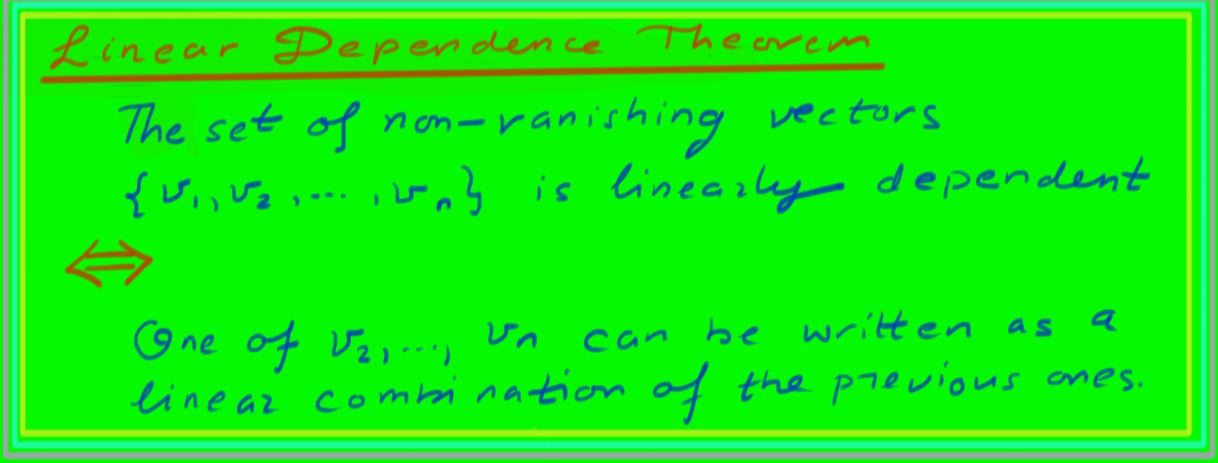 Linear Dependence Theorem
The set of non-vanishing vectors
{v₁, v₂, ..., vₙ} is linearly dependent
⟺
One of v₂, ..., vₙ can be written as a
linear combination of the previous ones.